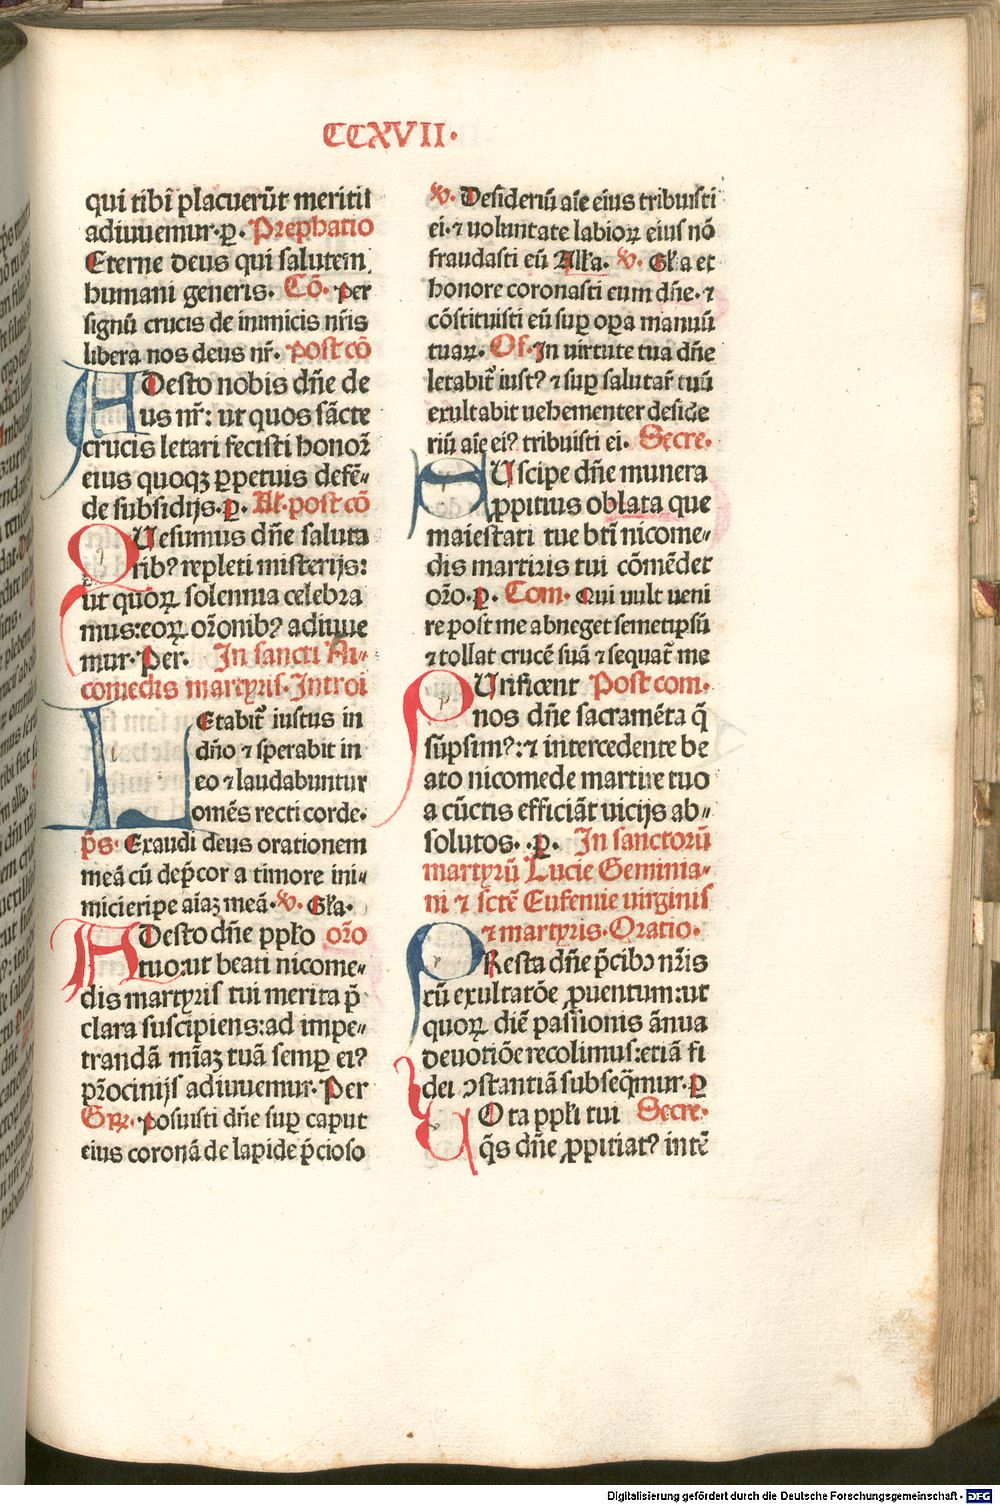 CCXVII·
qui tibi placuerūt meritis
adiuuemur·ꝑ· Prephatio
Eterne deus qui salutem
humani generis. Cō· Per
signū crucis de inimicis nr̄is
libera nos deus nr̄· Post cō
ADesto nobis dn̄e de
us nr̄: ut quos sācte
crucis letari fecisti honorē
eius quoqꝫ ꝑpetuis defē-
de subsidijs·ꝑ· Al·post cō
QUesumus dn̄e saluta
rib? repleti misterijs:
ut quoꝝ solennia celebra
mus:eoꝝ or̄onib? adiuue
mur·Per. In sancti Ni-
comedis martyris·Introi
LEtabit̄ iustus in
dn̄o ⁊ sperabit in
eo ⁊ laudabuntur
omēs recti corde·
p̄s· Exaudi deus orationem
meā cū dep̄cor a timore ini-
micieripe aīaꝫ meā·V̄· Gl̄a·
ADesto dn̄e ppl̄o or̄o
tuo:ut beati nicome-
dis martyris tui merita p̄
clara suscipiens:ad impe-
trandā mīaꝫ tuā semꝑ ei?
pr̄ocinijs adiuuemur·Per
Gꝝ·Posuisti dn̄e suꝑ caput
eius coronā de lapide p̄cioso
V̄· Desideriū aīe eius tribuisti
ei·⁊ uoluntate labioꝝ eius nō
fraudasti eū All̄a· V̄· Gl̄a et
honore coronasti eum dn̄e·⁊
cōstituisti eū suꝑ oꝑa manuū
tuaꝝ· Of·In uirtute tua dn̄e
letabit̄ iust? ⁊ suꝑ salutar̄ tuū
exultabit uehementer deside
riū aīe ei? tribuisti ei· Secre·
SUscipe dn̄e munera
ꝓpitius oblata que
maiestati tue bt̄i nicome-
dis martiris tui cōmēdet
or̄o·ꝑ· Com· Qui uult ueni
re post me abneget semetipsū
⁊ tollat crucē suā ⁊ sequat̄ me
PUrificent Post com·
nos dn̄e sacramēta q̄
sūpsim?:⁊ intercedente be
ato nicomede martire tuo
a cūctis efficiāt uicijs ab-
solutos· ·ꝑ· In sanctorū
martyrū Lucie Geminia-
ni ⁊ sctē Eufemie uirginis
⁊ martyris·Oratio·
PResta dn̄e p̄cibꝰ nr̄is
cū exultatōe ꝓuentum:ut
quoꝝ diē passionis ānua
deuotiōe recolimus:etiā fi
dei ꝯstantiā subseq̄mur·ꝑ
UOta ppl̄i tui Secre·
q̄s dn̄e ꝓpitiat? intē
Digitalisierung gefördert durch die Deutsche Forschungsgemeinschaft - DFG